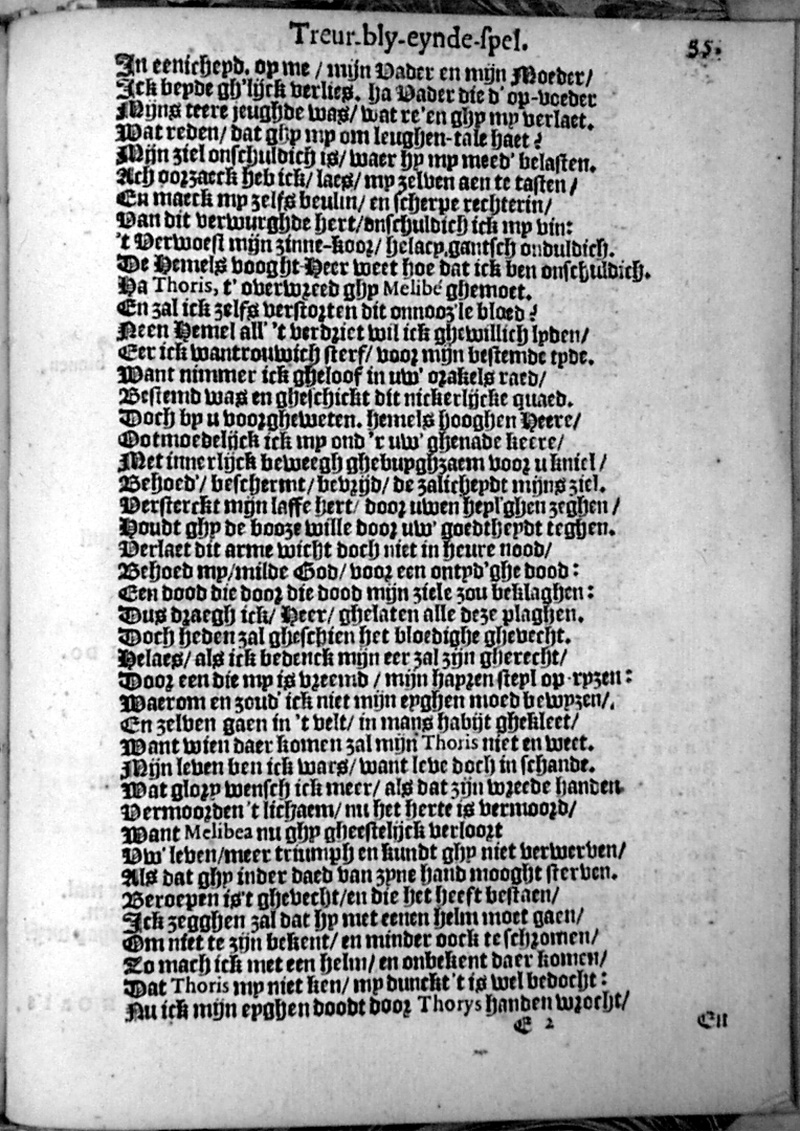 Treur-bly-eynde-spel. 35.
In eenicheyd. op me / mijn Vader en mijn Moeder/
Ick beyde gh'lijck verlies. Ha Vader die d' op-voeder
Mijns teere jeughde was/ wat re'en ghy my verlaet.
Wat reden/ dat ghy my om leughen-tale haet?
Mijn ziel onschuldich is/ waer hy my meed' belasten.
Ach oorzaeck heb ick/ laes/ my zelven aen te tasten/
En maeck my zelfs beulin/ en scherpe rechterin/
Van dit verwurghde hert/onschuldich ick my vin:
't Verwoest mijn zinne-koor/ helacy, gantsch onduldich.
De Hemels vooght-Heer weet hoe dat ick ben onschuldich.
Ha Thoris, t' overwreed ghy Melibé ghemoet.
En zal ick zelfs verstorten dit onnooz'le bloed?
Neen Hemel all' 't verdriet wil ick ghewillich lyden/
Eer ick wantrouwich sterf/ voor mijn bestemde tyde.
Want nimmer ick gheloof in uw' orakels raed/
Bestemd was en gheschickt dit nickerlijcke quaed.
Doch by u voorgheweten. hemels hooghen Heere/
Ootmoedelijck ick my ond'r uw' ghenade keere/
Met innerlijck beweegh ghebuyghzaem voor u kniel/
Behoed'/ beschermt/ bevrijd/ de zalicheydt mijns ziel.
Versterckt mijn laffe hert/ door uwen heyl'ghen zeghen/
Houdt ghy de booze wille door uw' goedtheydt teghen.
Verlaet dit arme wicht doch niet in heure nood/
Behoed my/milde God/ voor een ontyd'ghe dood:
Een dood die door die dood mijn ziele zou beklaghen:
Dus draegh ick/ Heer/ ghelaten alle deze plaghen.
Doch heden zal gheschien het bloedighe ghevecht.
Helaes/ als ick bedenck mijn eer zal zijn gherecht/
Door een die my is vreemd / mijn hayren steyl op-ryzen:
Waerom en zoud' ick niet mijn eyghen moed bewyzen/
En zelven gaen in 't velt/ in mans habijt ghekleet/
Want wien daer komen zal mijn Thoris niet en weet.
Mijn leven ben ick wars/ want leve doch in schande.
Wat glory wensch ick meer/ als dat zijn wreede handen
Vermoorden 't lichaem/ nu het herte is vermoord/
Want Melibea nu ghy gheestelijck verloort
Uw' leven/meer triumph en kundt ghy niet verwerven/
Als dat ghy inder daed van zyne hand mooght sterven.
Beroepen is't ghevecht/en die het heeft bestaen/
Ick zegghen zal dat hy met eenen helm moet gaen/
Om niet te zijn bekent/ en minder oock te schromen/
Zo mach ick met een helm/ en onbekent daer komen/
Dat Thoris my niet ken/ my dunckt 't is wel bedocht:
Nu ick mijn eyghen doodt door Thorys handen wrocht/
E 2 En